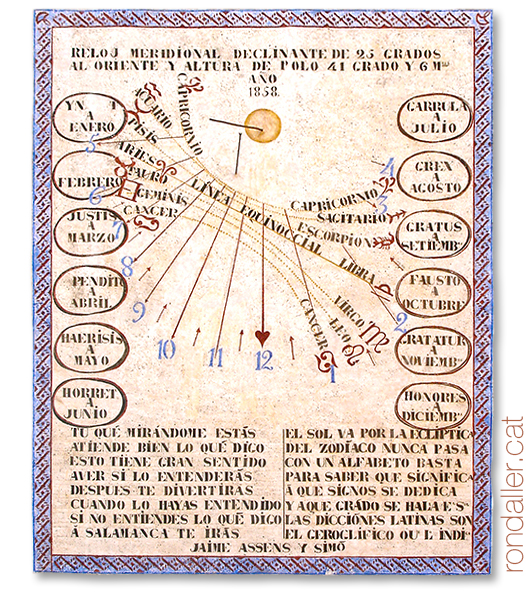 RELOJ MERIDIONAL DECLINANTE DE 25 GRADOS
AL ORIENTE Y ALTURA DE POLO 41 GRADO Y 6 Mᵒˢ
AÑO
1858.
YN A
A
ENERO
FEBRERO
JUSTIS
A
MARZO
PENDIT
A
ABRIL
HAERISIS
A
MAYO
HORRET
A
JUNIO
GARRULA
A
JULIO
GREX
A
AGOSTO
GRATUS
A
SETIEMBᵉ
FAUSTO
A
OCTUBRE
GRATATUR
A
NOVIEMBᵉ
HONORES
A
DICIEMBᵉ
CAPRICORNIO
ACUARIO
PISIS
ARIES
TAURO
GEMINIS
CANCER
LINEA EQUINOCCIAL
CAPRICORNIO
SAGITARIO
ESCORPION
LIBRA
VIRGO
LEO
CANCER
5
6
7
8
9
10
11
12
1
2
3
4
TU QUÉ MIRÁNDOME ESTÁS
ATIENDE BIEN LO QUÉ DIGO
ESTO TIENE GRAN SENTIDO
AVER SÍ LO ENTENDERÁS
DESPUES TE DIVERTIRÁS
CUANDO LO HAYAS ENTENDIDO
SÍ NO ENTIENDES LO QUÉ DIGO
Á SALAMANCA TE IRÁS
EL SOL VA POR LA ECLIPTICA
DEL ZODÍACO NUNCA PASA
CON UN ALFABETO BASTA
PARA SABER QUE SIGNIFICA
Á QUE SIGNOS SE DEDICA
Y AQUE GRÁDO SE HALLA ES
LAS DICCIÓNES LATINAS SON
EL GEROGLÍFICO OU L INDI
JAIME ASSENS Y SIMÓ
rondaller.cat